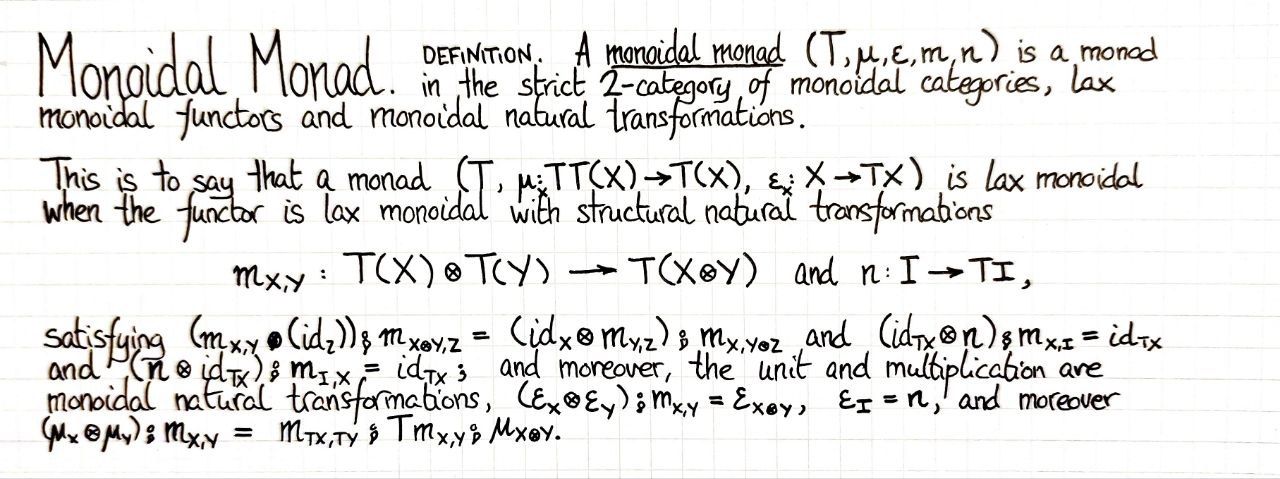 Monoidal Monad. DEFINITION. A monoidal monad (T, μ, ε, m, n) is a monad
in the strict 2-category of monoidal categories, lax
monoidal functors and monoidal natural transformations.
This is to say that a monad (T, μₓ: TT(X) → T(X), εₓ: X → TX) is lax monoidal
when the functor is lax monoidal with structural natural transformations
m_{X,Y} : T(X) ⊗ T(Y) → T(X⊗Y) and n: I → TI,
satisfying (m_{X,Y} ⊗ (id_Z)) ⨾ m_{X⊗Y,Z} = (id_X ⊗ m_{Y,Z}) ⨾ m_{X,Y⊗Z} and (id_{TX} ⊗ n) ⨾ m_{X,I} = id_{TX}
and (n ⊗ id_{TX}) ⨾ m_{I,X} = id_{TX} ; and moreover, the unit and multiplication are
monoidal natural transformations, (ε_X ⊗ ε_Y) ⨾ m_{X,Y} = ε_{X⊗Y}, ε_I = n, and moreover
(μ_X ⊗ μ_Y) ⨾ m_{X,Y} = m_{TX,TY} ⨾ T m_{X,Y} ⨾ μ_{X⊗Y}.